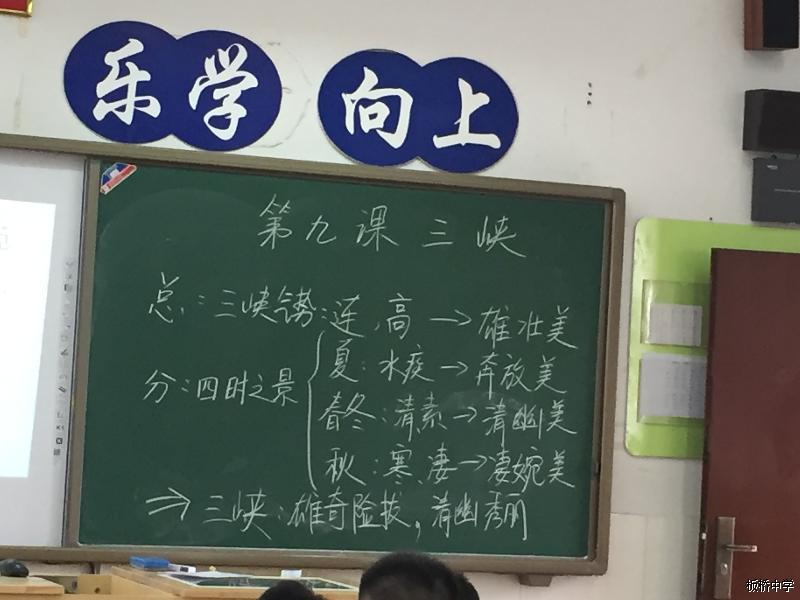 乐学 向上
第九课 三峡
总:三峡气势:连、高→雄壮美
分:四时之景
夏:水疾→奔放美
春冬:清素→清幽美
秋:寒、凄→凄婉美
⇒三峡:雄奇险拔,清幽秀丽
板桥中学